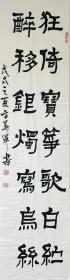 狂倚寶箏歌白紵
醉移銀燭寫烏絲
戊戌之夏 軍書